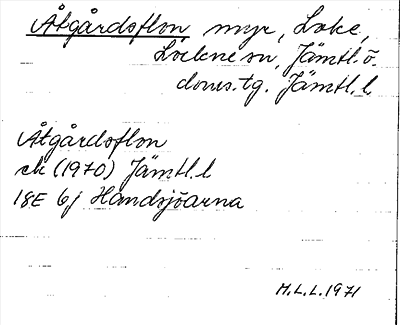 Åtgårdsflon, myr, Loke,
Lockne sn, Jämtl.ö.
doms.tg. Jämtl.l.
Åtgårdsflon
ek (1970) Jämtl.l
18E 6j Handsjöarna
M.L.L. 1971